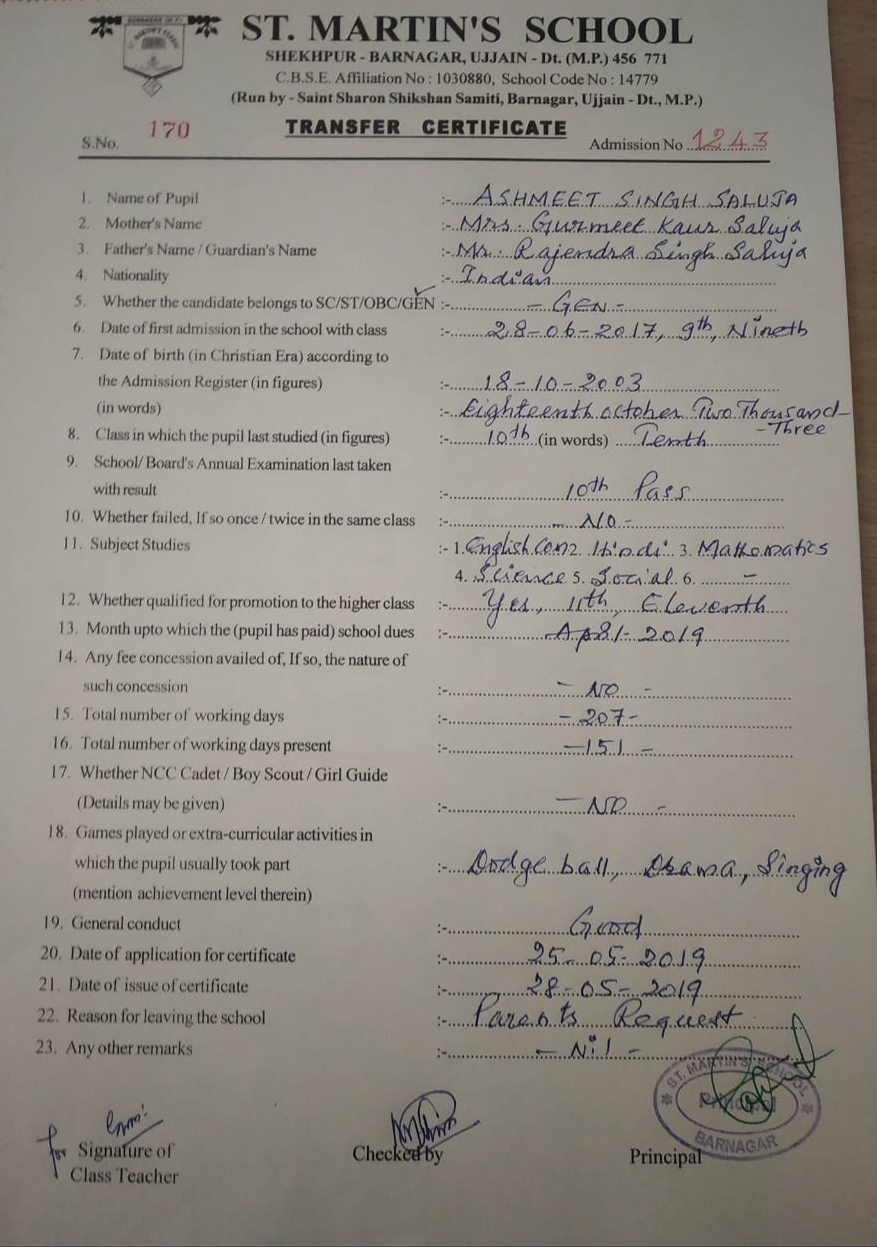 ST. MARTIN'S SCHOOL
SHEKHPUR - BARNAGAR, UJJAIN - Dt. (M.P.) 456 771
C.B.S.E. Affiliation No : 1030880, School Code No : 14779
(Run by - Saint Sharon Shikshan Samiti, Barnagar, Ujjain - Dt., M.P.)
S.No. 170 TRANSFER CERTIFICATE Admission No 1243
1. Name of Pupil :- ASHMEET SINGH SALUJA
2. Mother's Name :- Mrs. Gurmeet Kaur Saluja
3. Father's Name / Guardian's Name :- Mr. Rajendra Singh Saluja
4. Nationality :- Indian
5. Whether the candidate belongs to SC/ST/OBC/GEN :- - GEN -
6. Date of first admission in the school with class :- 28-06-2017, 9th, Nineth
7. Date of birth (in Christian Era) according to
the Admission Register (in figures) :- 18-10-2003
(in words) :- Eighteenth october Two Thousand-
-Three
8. Class in which the pupil last studied (in figures) :- 10th (in words) Tenth
9. School/ Board's Annual Examination last taken
with result :- 10th Pass
10. Whether failed, If so once / twice in the same class :- - NO -
11. Subject Studies :- 1. English Com 2. Hindi 3. Mathematics
4. Science 5. Social 6. -
12. Whether qualified for promotion to the higher class :- Yes, 11th, Eleventh
13. Month upto which the (pupil has paid) school dues :- 2019
14. Any fee concession availed of, If so, the nature of
such concession :- - NO -
15. Total number of working days :- - 207 -
16. Total number of working days present :- - 151 -
17. Whether NCC Cadet / Boy Scout / Girl Guide
(Details may be given) :- - NO -
18. Games played or extra-curricular activities in
which the pupil usually took part :- Dodge ball, Drama, Singing
(mention achievement level therein)
19. General conduct :- Good
20. Date of application for certificate :- 25-05-2019
21. Date of issue of certificate :- 28-05-2019
22. Reason for leaving the school :- Parents Request
23. Any other remarks :- - Nil -
ST. MARTIN'S SCHOOL
Principal
BARNAGAR
for Signature of
Class Teacher
Checked by
Principal